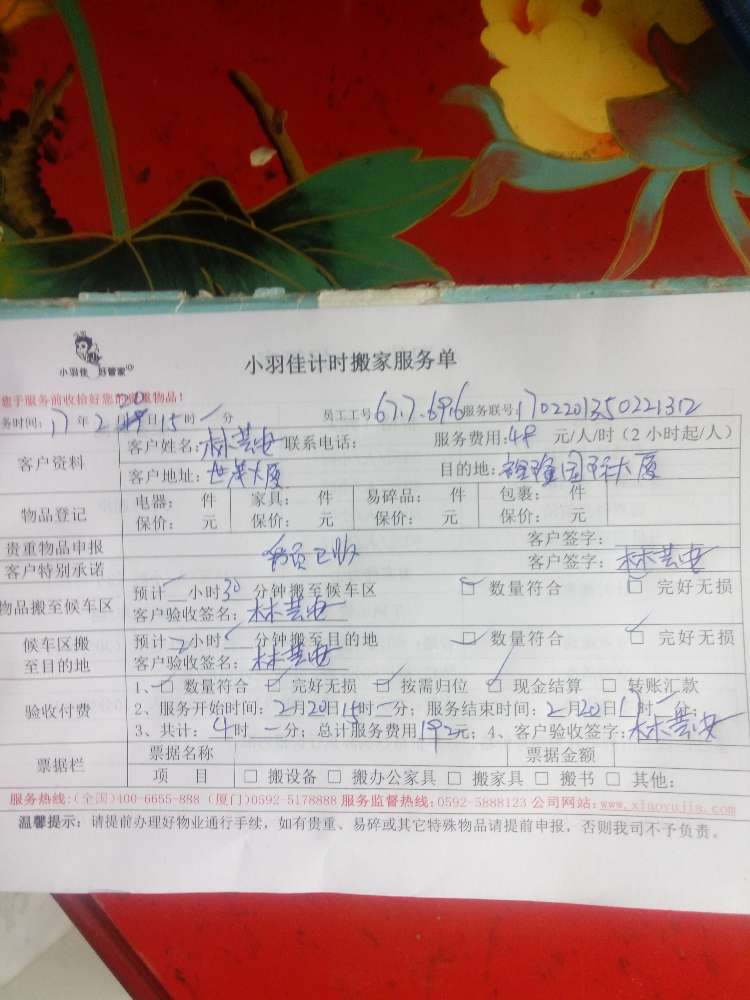 小羽佳 好管家
小羽佳计时搬家服务单
您于服务前收拾好您的贵重物品!
务时间: 17 年 2 月 20 日 15 时 一 分 员工工号 677.696 服务联号: 1702201350221312
客户资料
客户姓名: 林芸安 联系电话: 服务费用: 48 元/人/时(2小时起/人)
客户地址: 世贸大厦 目的地: 国际大厦
物品登记
电器: 件 家具: 件 易碎品: 件 包裹: 件
保价: 元 保价: 元 保价: 元 保价: 元
贵重物品申报 客户签字:
客户特别承诺 客户签字: 林芸安
物品搬至候车区
预计 一 小时 30 分钟搬至候车区 □ 数量符合 □ 完好无损
客户验收签名: 林芸安
候车区搬至目的地
预计 2 小时 一 分钟搬至目的地 □ 数量符合 □ 完好无损
客户验收签名: 林芸安
验收付费
1、□ 数量符合 □ 完好无损 □ 按需归位 □ 现金结算 □ 转账汇款
2、服务开始时间: 2 月 20 日 15 时 一 分; 服务结束时间: 2 月 20 日 17 时 一 分;
3、共计: 4 时 一 分; 总计服务费用 192 元; 4、客户验收签字: 林芸安
票据栏
票据名称 票据金额
项 目 □ 搬设备 □ 搬办公家具 □ 搬家具 □ 搬书 □ 其他:
服务热线:(全国)400-6655-888 (厦门)0592-5178888 服务监督热线:0592-5888123 公司网站:www.xiaoyujia.com
温馨提示: 请提前办理好物业通行手续, 如有贵重、易碎或其它特殊物品请提前申报, 否则我司不予负责。